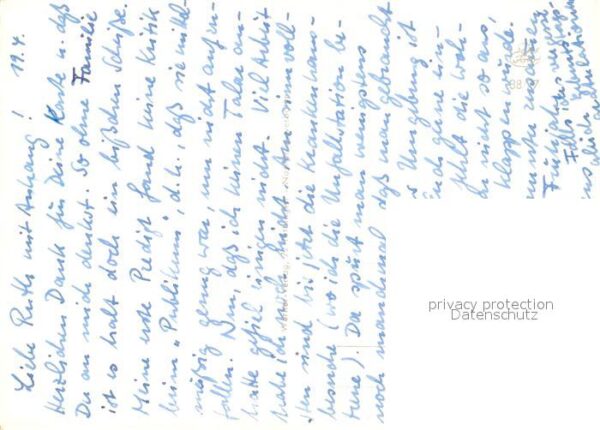 19.4.
Liebe Ruth mit Anhang!
Herzlichen Dank für Deine Karte u. daß
Du an mich denkst. So ohne Familie
ist es halt doch ein bißchen Scheiße.
Meine erste Predigt fand keine Kritik
beim "Publikum", d.h., daß sie mittel-
mäßig genug war, um nicht aufzu-
fallen. Nun, daß ich keinen Talar an-
hatte gefiel einigen nicht. Viel Arbeit
habe ich noch nicht. Am sinnvoll-
sten sind bis jetzt die Krankenhaus-
besuche (wo ich die Unfallstation be-
treue). Da spürt man wenigstens
noch manchmal daß man gebraucht
Umgebung ist
Euch gerne ein-
die Woh-
nicht so aus,
klappen würde.
Falls
privacy protection
Datenschutz